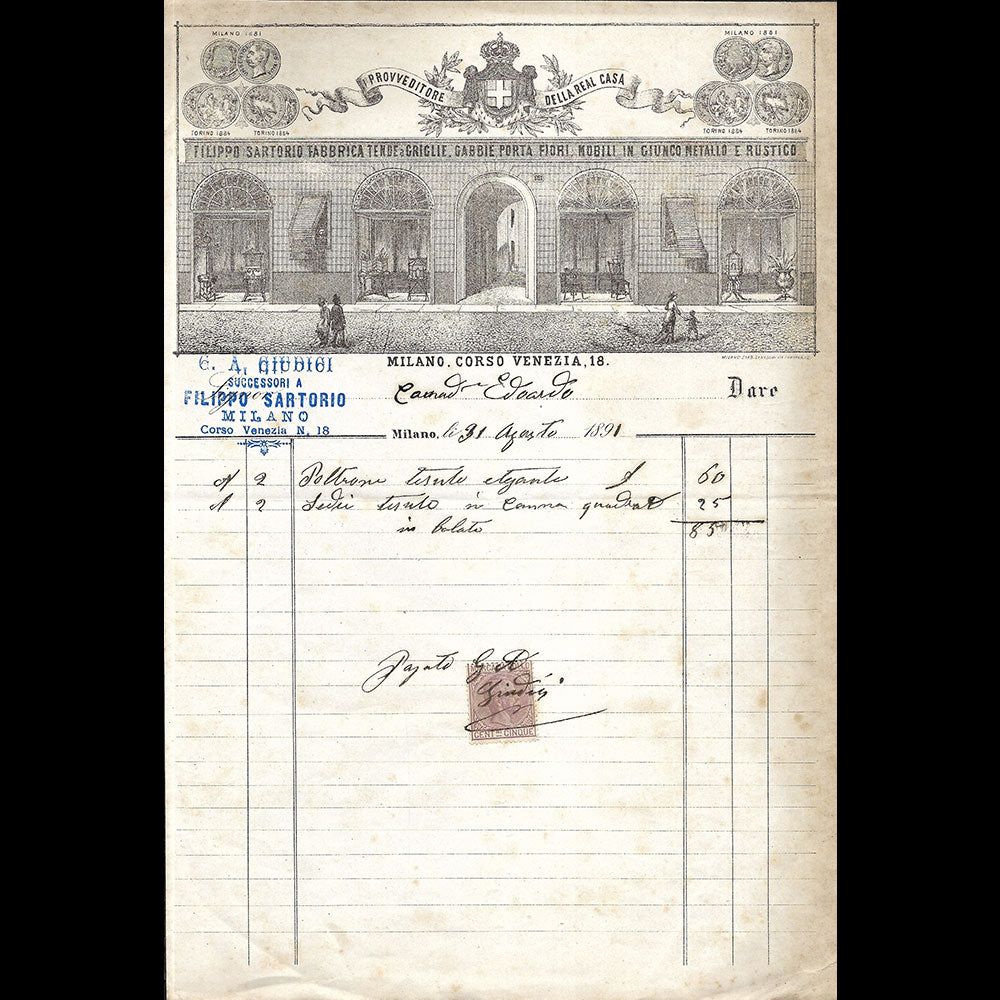 MILANO 1881
MILANO 1881
PROVVEDITORE DELLA REAL CASA
TORINO 1884 TORINO 1884
TORINO 1884 TORINO 1884
FILIPPO SARTORIO FABBRICA TENDE, GRIGLIE, GABBIE PORTA FIORI, MOBILI IN GIUNCO METALLO E RUSTICO
MILANO, CORSO VENEZIA, 18.
G. A. GIUDICI
SUCCESSORI A
FILIPPO SARTORIO
MILANO
Corso Venezia N. 18
Edoardo
Dare
Milano, li 31 Agosto 1891
N 2 Poltrone tessute elegante £ 60
N 2 Sedie tessuto in Canna quadrat 25
in 85
Pagato G A
Giudici
MARCA DA BOLLO
CENT. CINQUE